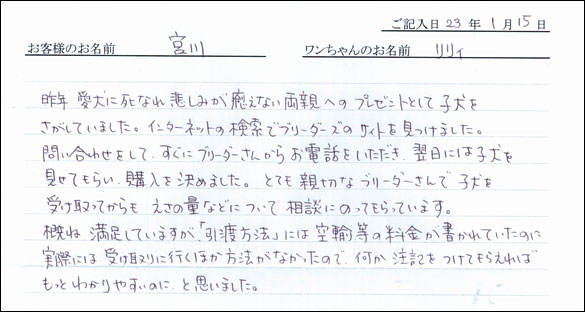 ご記入日 23 年 1 月 15 日
お客様のお名前 宮川 ワンちゃんのお名前 リリィ
昨年 愛犬に死なれ 悲しみが癒えない両親へのプレゼントとして子犬を
さがしていました。インターネットの検索でブリーダーズのサイトを見つけました。
問い合わせをして、すぐにブリーダーさんからお電話をいただき、翌日には子犬を
見せてもらい、購入を決めました。とても親切なブリーダーさんで子犬を
受け取ってからも えさの量などについて 相談にのってもらっています。
概ね 満足していますが、「引渡方法」には空輸等の料金が書かれていたのに
実際には 受け取りに行くほか方法がなかったので、何か 注記をつけてもらえれば
もっとわかりやすいのに、と思いました。